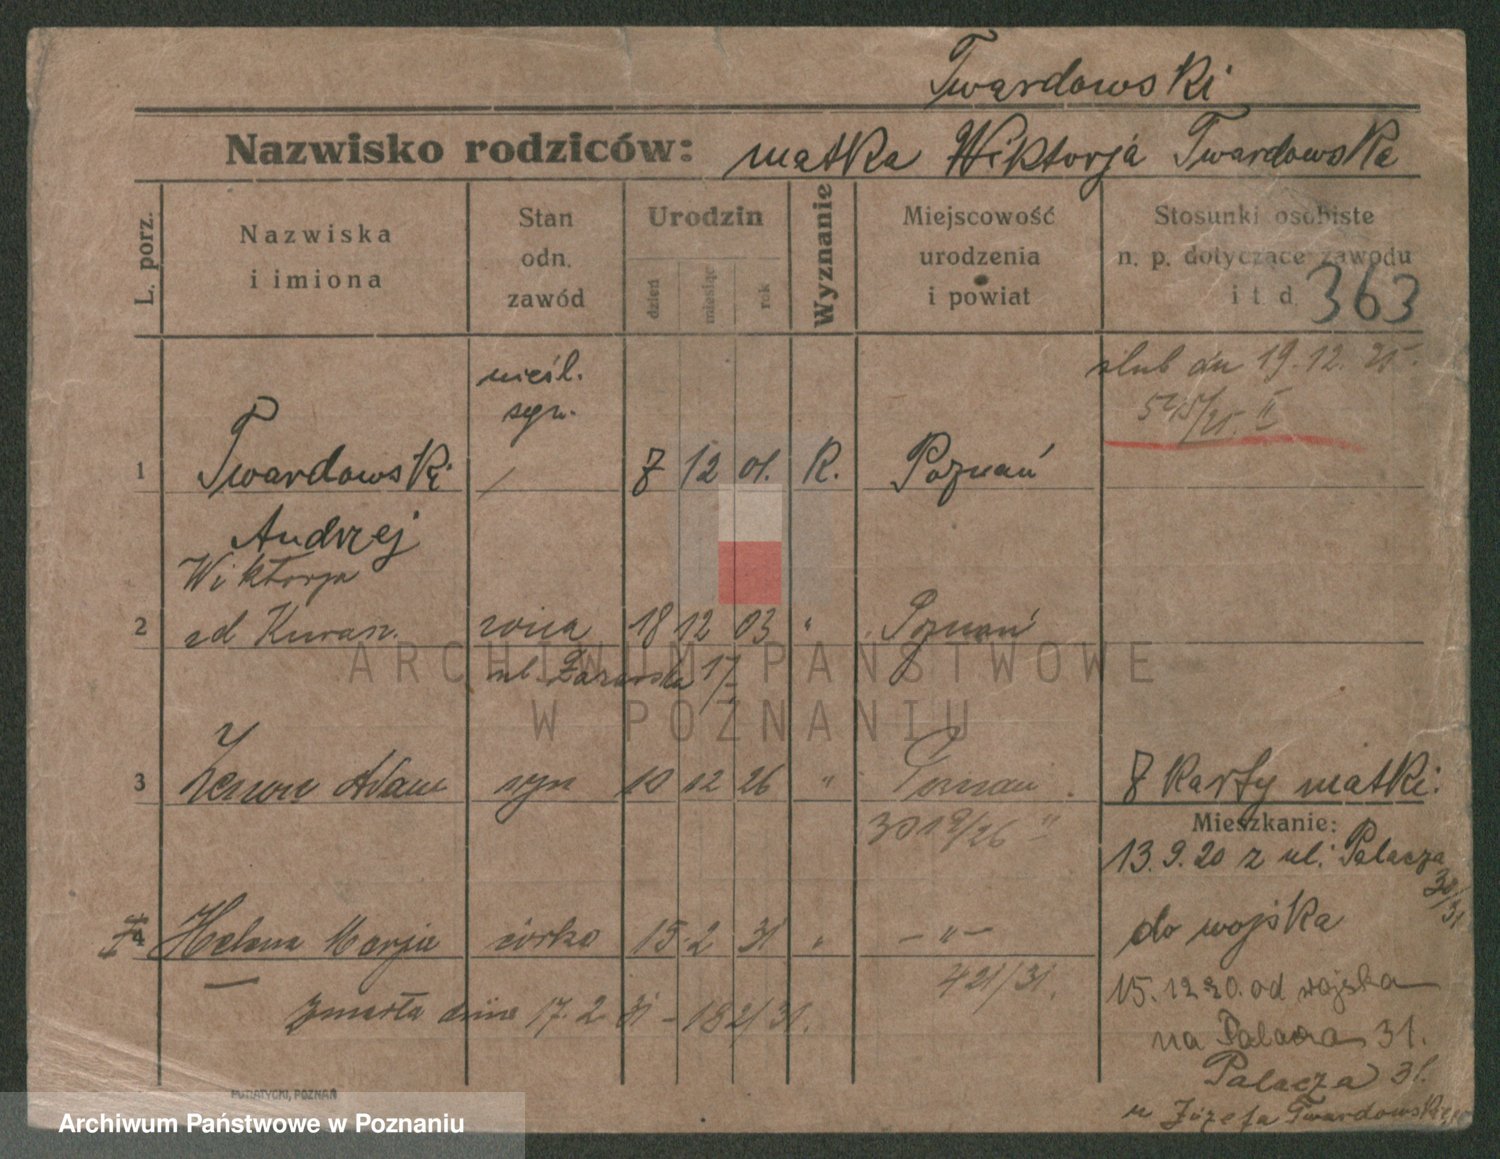 Twardowski
Nazwisko rodziców: matka Wiktorja Twardowska
L. porz.
Nazwiska
i imiona
Stan
odn.
zawód
Urodzin
dzień
miesiąc
rok
Wyznanie
Miejscowość
urodzenia
i powiat
Stosunki osobiste
n. p. dotyczące zawodu
i t d.
363
nieśl.
syn.
ślub dn 19.12.25.
1 Twardowski 8 12 01. R. Poznań
Andrzej
Wiktorja
2 18 12 03 " Poznań
ul. 17
3 Zenon Adam syn 10 12 26 " Poznań
Z karty matki:
Mieszkanie:
13.9.20 z ul. Palacza
30/31
do wojska
4 Helena Marja córka 15 2 31 " - " -
421/31.
15.12.20. od wojska
na Palacza 31.
zmarła dnia 17. 2 31 - 182/31.
Palacza 31.
u Józefa Twardowskiego
POTATYCKI, POZNAŃ
ARCHIWUM PAŃSTWOWE
W POZNANIU
Archiwum Państwowe w Poznaniu